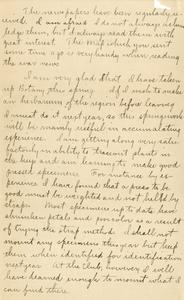 The newspapers have been regularly re-
ceived. I am afraid I do not always acknow-
ledge them, but I always read them with
great interest. The map which you sent
some time ago is very handy when reading
the war news.
I am very glad that I have taken
up Botany this spring. If I wish to make
an herbarium of the region before leaving
I must do it next year, so this spring's work
will be mainly useful in accumulating
experience. I am getting along very satis-
factorily in ability to trace out plants in
the key and am learning to make good
pressed specimens. For instance by ex-
perience I have found that a press to be
good must be weighted and not held by
straps. Most specimens up to date have
shrunken petals and poor color as a result
of trying the strap method. I shall not
mount any specimens this year but keep
them when identified for identification
next year. At the club, however, I will
have learned enough to mount what I
can find there.